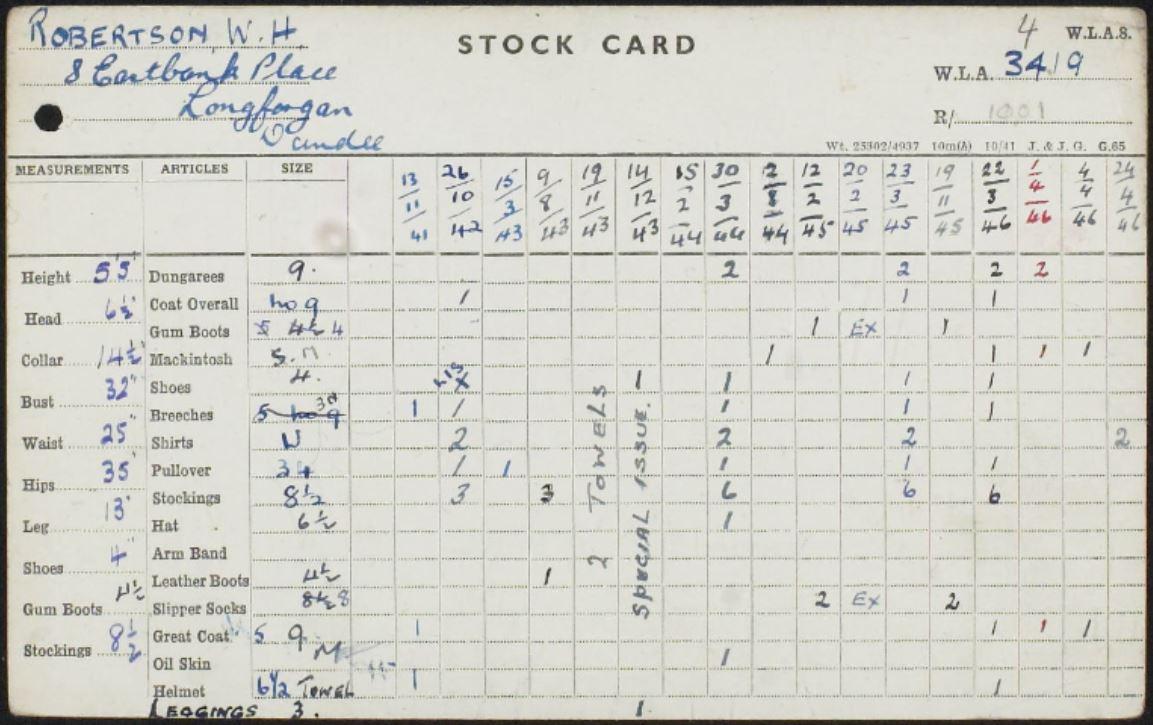 ROBERTSON, W.H. STOCK CARD 4 W.L.A.S.
8 Eastbank Place W.L.A. 3419
Longforgan R/ 1001
Dundee
Wt. 25302/4937 10m(A) 10/41 J. & J. G. G.65
MEASUREMENTS ARTICLES SIZE 13/11/41 26/10/42 15/3/43 9/8/43 19/11/43 14/12/43 15/2/44 30/3/44 2/8/44 12/2/45 20/2/45 23/3/45 19/11/45 22/3/46 1/4/46 4/4/46 24/4/46
Height 5'5" Dungarees 9. 2 2 2 2
Coat Overall ho 9 1 1 1
Head 6½ Gum Boots 5 4½ 4 1 EX 1
Collar 14½" Mackintosh S. M 1 1 1 1
Shoes 4. X 1 1 1 1
Bust 32" Breeches 5 ho 9 1 1 1 1 1
Waist 25" Shirts 2 2 2 2
Pullover 34 1 1 1 1 1
Hips 35" Stockings 8½ 3 3 6 6 6
Leg 13" Hat 6½ 1
Arm Band
Shoes 4" Leather Boots 4½ 1
Gum Boots 4½ Slipper Socks 8½ 8 2 EX 2
Stockings 8½ Great Coat 5 9 M 1 1 1 1
Oil Skin 1
Helmet 6½ TOWEL 1 1
LEGGINGS 3. 1
2 TOWELS
SPECIAL ISSUE.